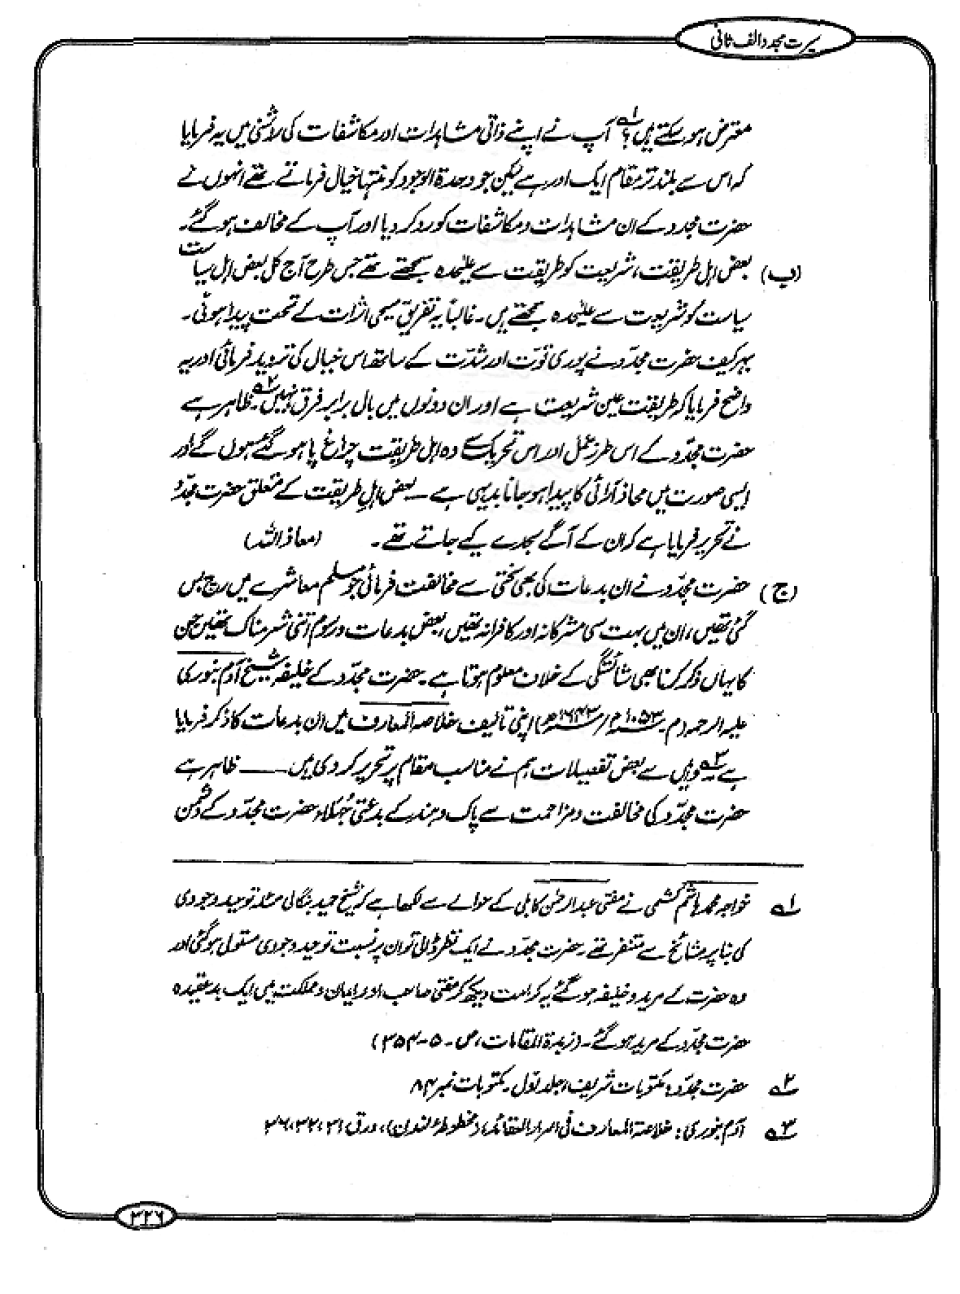 سیرت مجدد الف ثانی
معترض ہو سکتے ہیں؟ ۱؎ آپ نے اپنے ذاتی مشاہدات اور مکاشفات کی روشنی میں یہ فرمایا
کہ اس سے بلند تر مقام ایک اور ہے لیکن جو وحدۃ الوجود کو منتہا خیال فرماتے تھے انہوں نے
حضرت مجدد کے ان مشاہدات و مکاشفات کو رد کر دیا اور آپ کے مخالف ہو گئے۔
(ب) بعض اہل طریقت، شریعت کو طریقت سے علیحدہ سمجھتے تھے جس طرح آج کل بعض اہل سیاست
سیاست کو شریعت سے علیحدہ سمجھتے ہیں۔ غالباً یہ تفریق مسیحی اثرات کے تحت پیدا ہوئی۔
بہر کیف حضرت مجدّد نے پوری قوت اور شدّت کے ساتھ اس خیال کی تردید فرمائی اور یہ
واضح فرمایا کہ طریقت عین شریعت ہے اور ان دونوں میں بال برابر فرق نہیں ۲؎۔ ظاہر ہے
حضرت مجدّد کے اس طرز عمل اور اس تحریک سے وہ اہل طریقت چراغ پا ہو گئے ہوں گے اور
ایسی صورت میں محاذ آرائی کا پیدا ہو جانا بدیہی ہے ۔ بعض اہلِ طریقت کے متعلق حضرت مجدّد
نے تحریر فرمایا ہے کہ ان کے آگے سجدے کیے جاتے تھے۔ (معاذ اللہ)
(ج) حضرت مجدّد نے ان بدعات کی بھی سختی سے مخالفت فرمائی جو مسلم معاشرے میں رچ بس
گئی تھیں، ان میں بہت سی مشرکانہ اور کافرانہ تھیں، بعض بدعات و رسوم اتنی شرمناک تھیں جن
کا یہاں ذکر کرنا بھی شائستگی کے خلاف معلوم ہوتا ہے۔ حضرت مجدّد کے خلیفہ شیخ آدم بنوری
علیہ الرحمہ (م۔ ۱۰۵۳ھ / ۱۶۴۳ء) اپنی تالیف خلاصۃ المعارف میں ان بدعات کا ذکر فرمایا
ہے ۳؎ وہیں سے بعض تفصیلات ہم نے مناسب مقام پر تحریر کر دی ہیں۔ ـــــ ظاہر ہے
حضرت مجدّد کی مخالفت و مزاحمت سے پاک و ہند کے بدعتی جُہلاء حضرت مجدّد کے دشمن
۱؎ خواجہ محمد ہاشم کشمی نے مفتی عبدالرحمٰن کابلی کے حوالے سے لکھا ہے کہ شیخ حمید بنگالی مسئلہ توحید وجودی
کی بنا پر مشائخ سے متنفر تھے۔ حضرت مجدّد نے ایک نظر ڈالی تو ان پر نسبت توحید وجودی مستولی ہو گئی اور
وہ حضرت کے مرید و خلیفہ ہو گئے یہ کرامت دیکھ کر مفتی صاحب اور ایک بد عقیدہ
حضرت مجدّد کے مرید ہو گئے۔ (زبدۃ المقامات، ص۔ ۵-۳۵۴)
۲؎ حضرت مجدّد: مکتوبات شریف، جلد اوّل۔ مکتوبات نمبر ۸۴
۳؎ آدم بنوری: خلاصۃ المعارف فی اسرار العقائد، (مخطوطۂ لندن)، ورق ۳۱، ۳۲، ۳۶
۳۲۶